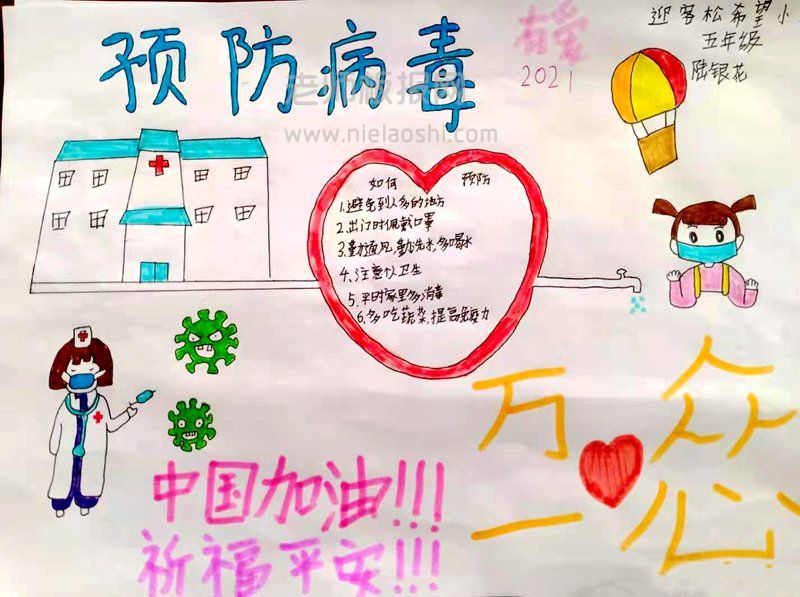 预防病毒
有爱
2021
迎客松希望小
五年级
陆银花
老师板报网
www.nielaoshi.com
如何 预防
1.避免到人多的地方
2.出门时佩戴口罩
3.勤通风,勤洗 ,多喝水
4.注意 卫生
5.平时家里多消毒
6.多吃蔬菜,提高免疫力
万众
一心
中国加油!!!
祈福平安!!!